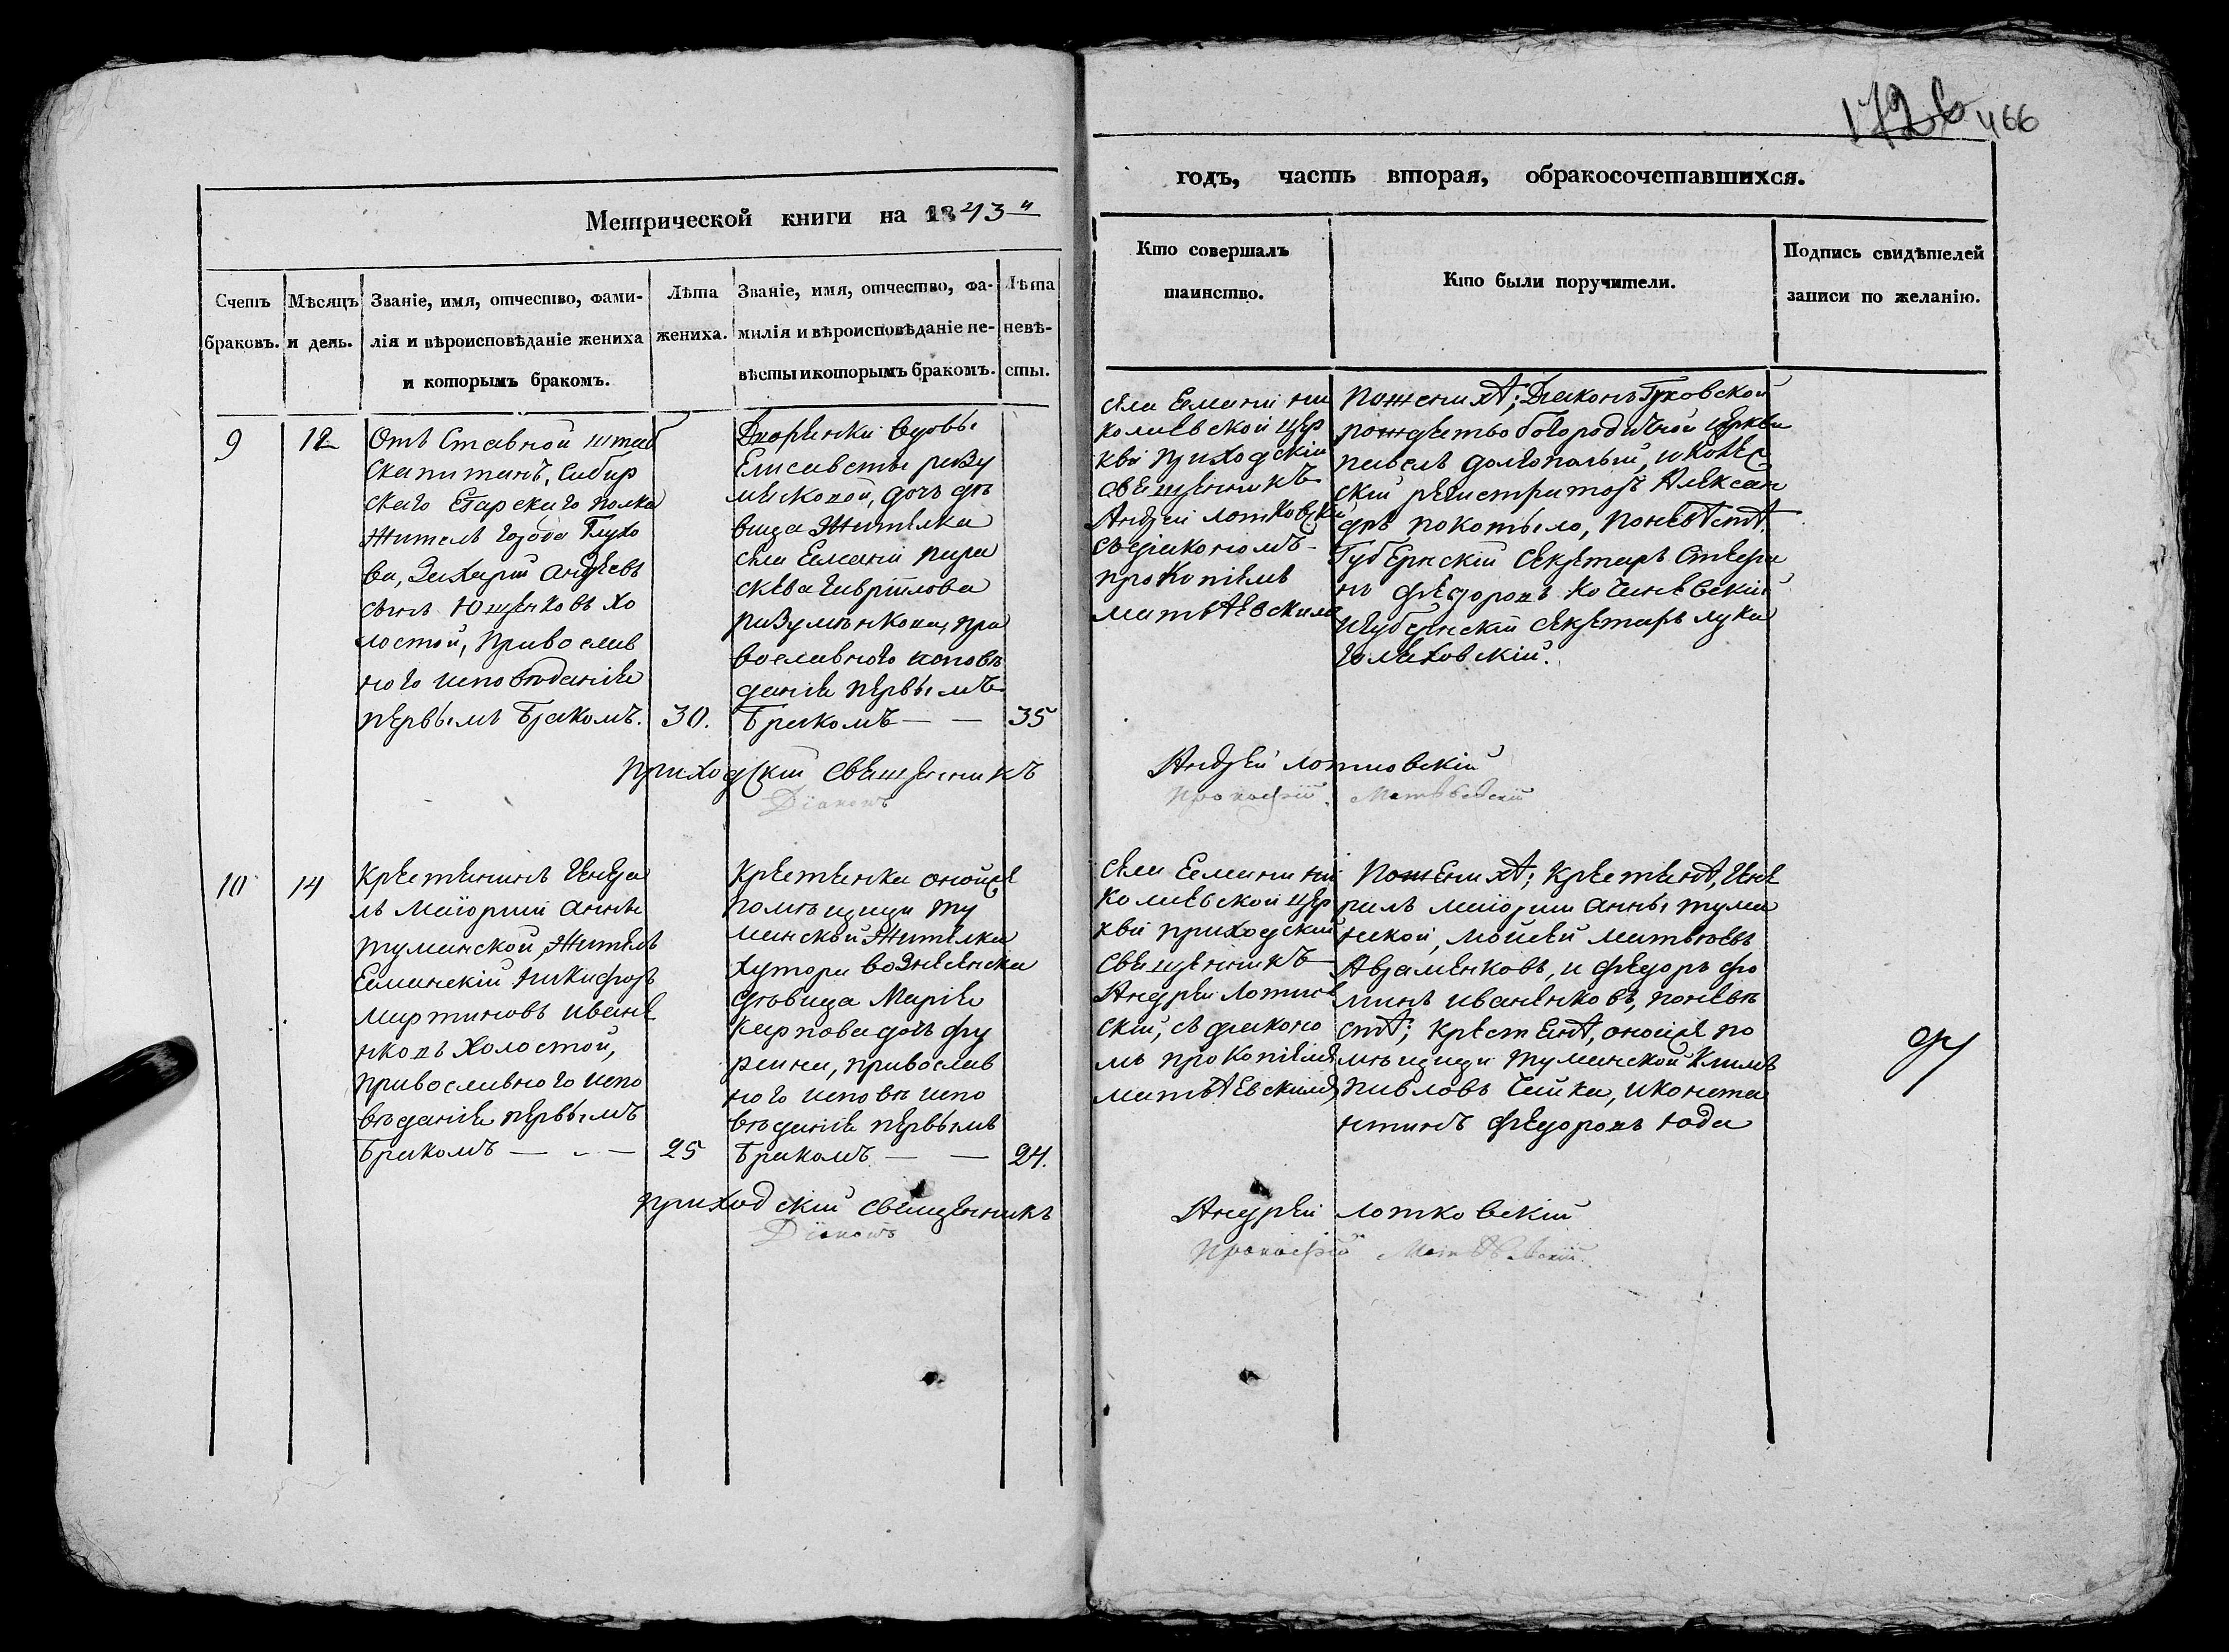 466
Метрической книги на 1843
годъ, часть вторая, обракосочетавшихся.
Счетъ браковъ.
Мѣсяцъ и день.
Званіе, имя, отчество, фами-
лія и вѣроисповѣданіе жениха
и которымъ бракомъ.
Лѣта жениха.
Званіе, имя, отчество, фа-
милія и вѣроисповѣданіе не-
вѣсты и которымъ бракомъ.
Лѣта невѣ-
сты.
Кто совершалъ
таинство.
Кто были поручители.
Подпись свидѣтелей
записи по желанію.
9
12
Отъ Ставной штаб
скапитанъ, Сибир
скаго Егарскаго полка
житель города Глухо
ва, Захарій Андреевъ
сынъ Ющенковъ хо
лостой, православ
ного исповѣданія
первымъ бракомъ.
30.
Дворянки вдовы
Елисаветы разу
менковой, дочь дѣ
вица Жителка
села Есмани пара
скева Гаврілова
разуменкова, пра
вославного исповѣ
данія первымъ
бракомъ — —
35
села Есмани ни
колаевской цер
кви приходскій
священникъ
Андрей Лотковскій
съ діакономъ
прокопіемъ
матвѣевскимъ
По женихѣ; Діаконъ Глуховской
рождество богородичной церкви
павелъ долгополый, и колеж
скій регистраторъ Алексан
дръ покотыло, по невѣстѣ
Губернскій секретарь Стефа
нъ Федоровъ Кочановскій
и губернскій секретарь лука
Голяховскій.
приходскій священникъ Андрей Лотковскій
Діаконъ Прокофій Матвѣевскій
10
14
Крестянинъ Генера
лъ маіорши анны
туманской, житель
Есманскій Никифоръ
мартиновъ иване
нковъ холостой,
православного испо
вѣданія первымъ
бракомъ — - —
25
Крестянка оной же
помѣщици ту
манской жителка
хутора вознесенска
дѣвица Марія
карпова дочь фу
рсина, православ
ного исповѣ испо
вѣданія первымъ
бракомъ — —
24.
села Есмани ни
колаевской цер
кви приходскій
священникъ
Андрей Лотков
скій, съ діаконо
мъ прокопіемъ
матвѣевскимъ
По женихѣ; крестянѣ, Гене
ралъ маіорши анны тума
нской, мойсей матвѣевъ
Авраменковъ, и федоръ фо
минъ иваненковъ, по невѣ
стѣ; крестянѣ, оной же по
мѣщици туманской Климъ
павловъ Чайка, и конста
нтинъ федоровъ юда
приходскій священникъ Андрей Лотковскій
Діаконъ Прокофій Матвѣевскій